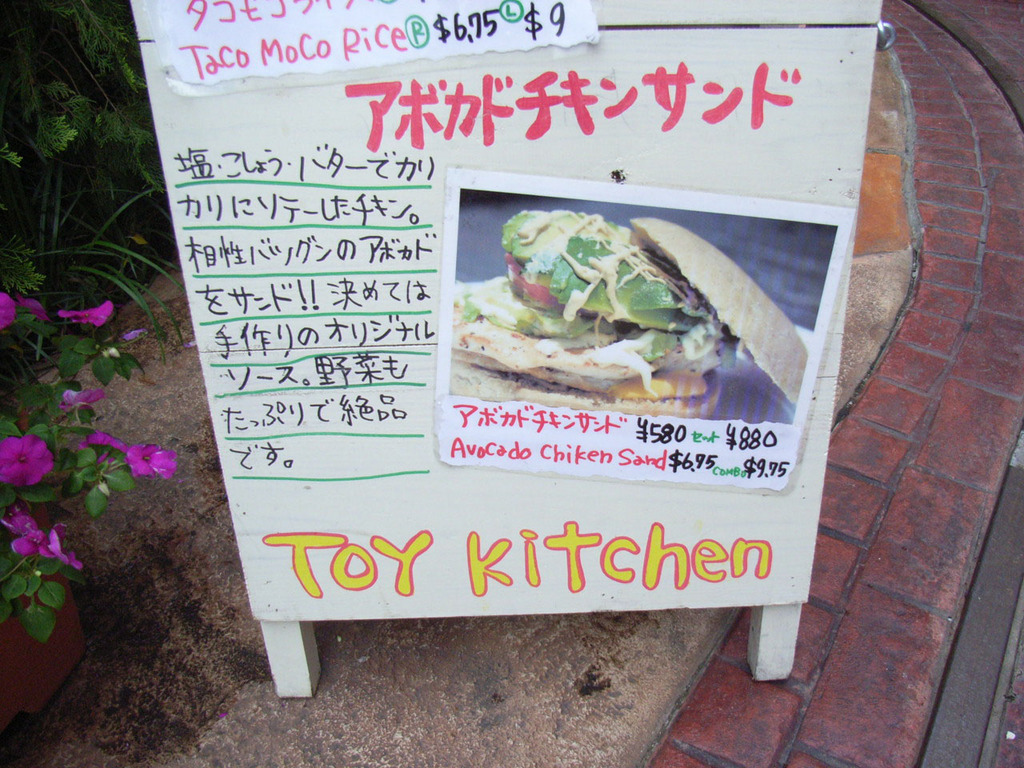 タコモコライス
Taco Moco Rice Ⓡ $6,75 Ⓛ $9
アボカドチキンサンド
塩・こしょう・バターでカリ
カリにソテーしたチキン。
相性バツグンのアボカド
をサンド!! 決めては
手作りのオリジナル
ソース。野菜も
たっぷりで絶品
です。
アボカドチキンサンド ¥580 セット ¥880
Avocado Chiken Sand $6.75 COMBO $9.75
TOY Kitchen